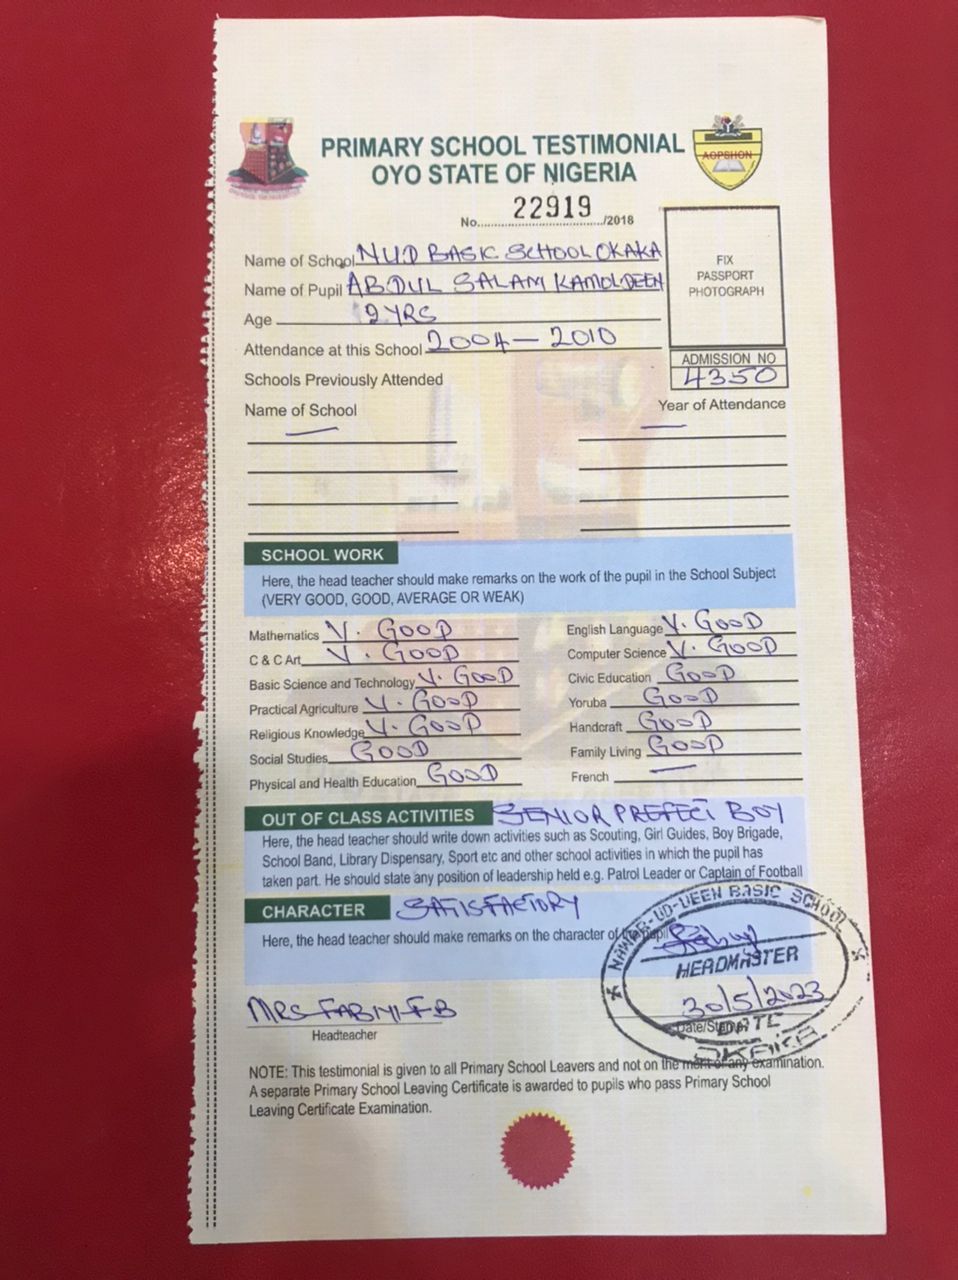 PRIMARY SCHOOL TESTIMONIAL
OYO STATE OF NIGERIA
AOPSHON
No. 22919 /2018
Name of School NUD BASIC SCHOOL OKAKA
Name of Pupil ABDUL SALAM KAMOLDEEN
Age 12 YRS
Attendance at this School 2004 — 2010
FIX
PASSPORT
PHOTOGRAPH
ADMISSION NO
4350
Schools Previously Attended
Name of School Year of Attendance
SCHOOL WORK
Here, the head teacher should make remarks on the work of the pupil in the School Subject
(VERY GOOD, GOOD, AVERAGE OR WEAK)
Mathematics V. GOOD
C & C Art V. GOOD
Basic Science and Technology V. GOOD
Practical Agriculture V. GOOD
Religious Knowledge V. GOOD
Social Studies GOOD
Physical and Health Education GOOD
English Language V. GOOD
Computer Science V. GOOD
Civic Education GOOD
Yoruba GOOD
Handcraft GOOD
Family Living GOOD
French —
OUT OF CLASS ACTIVITIES SENIOR PREFECT BOY
Here, the head teacher should write down activities such as Scouting, Girl Guides, Boy Brigade,
School Band, Library Dispensary, Sport etc and other school activities in which the pupil has
taken part. He should state any position of leadership held e.g. Patrol Leader or Captain of Football
CHARACTER SATISFACTORY
Here, the head teacher should make remarks on the character of the pupil
NAWAR-UD-DEEN BASIC SCHOOL
HEADMASTER
30/5/2023
DATE
OKAKA
MRS FABMI F.B
Headteacher
Date/Stamp
NOTE: This testimonial is given to all Primary School Leavers and not on the merit of any examination.
A separate Primary School Leaving Certificate is awarded to pupils who pass Primary School
Leaving Certificate Examination.